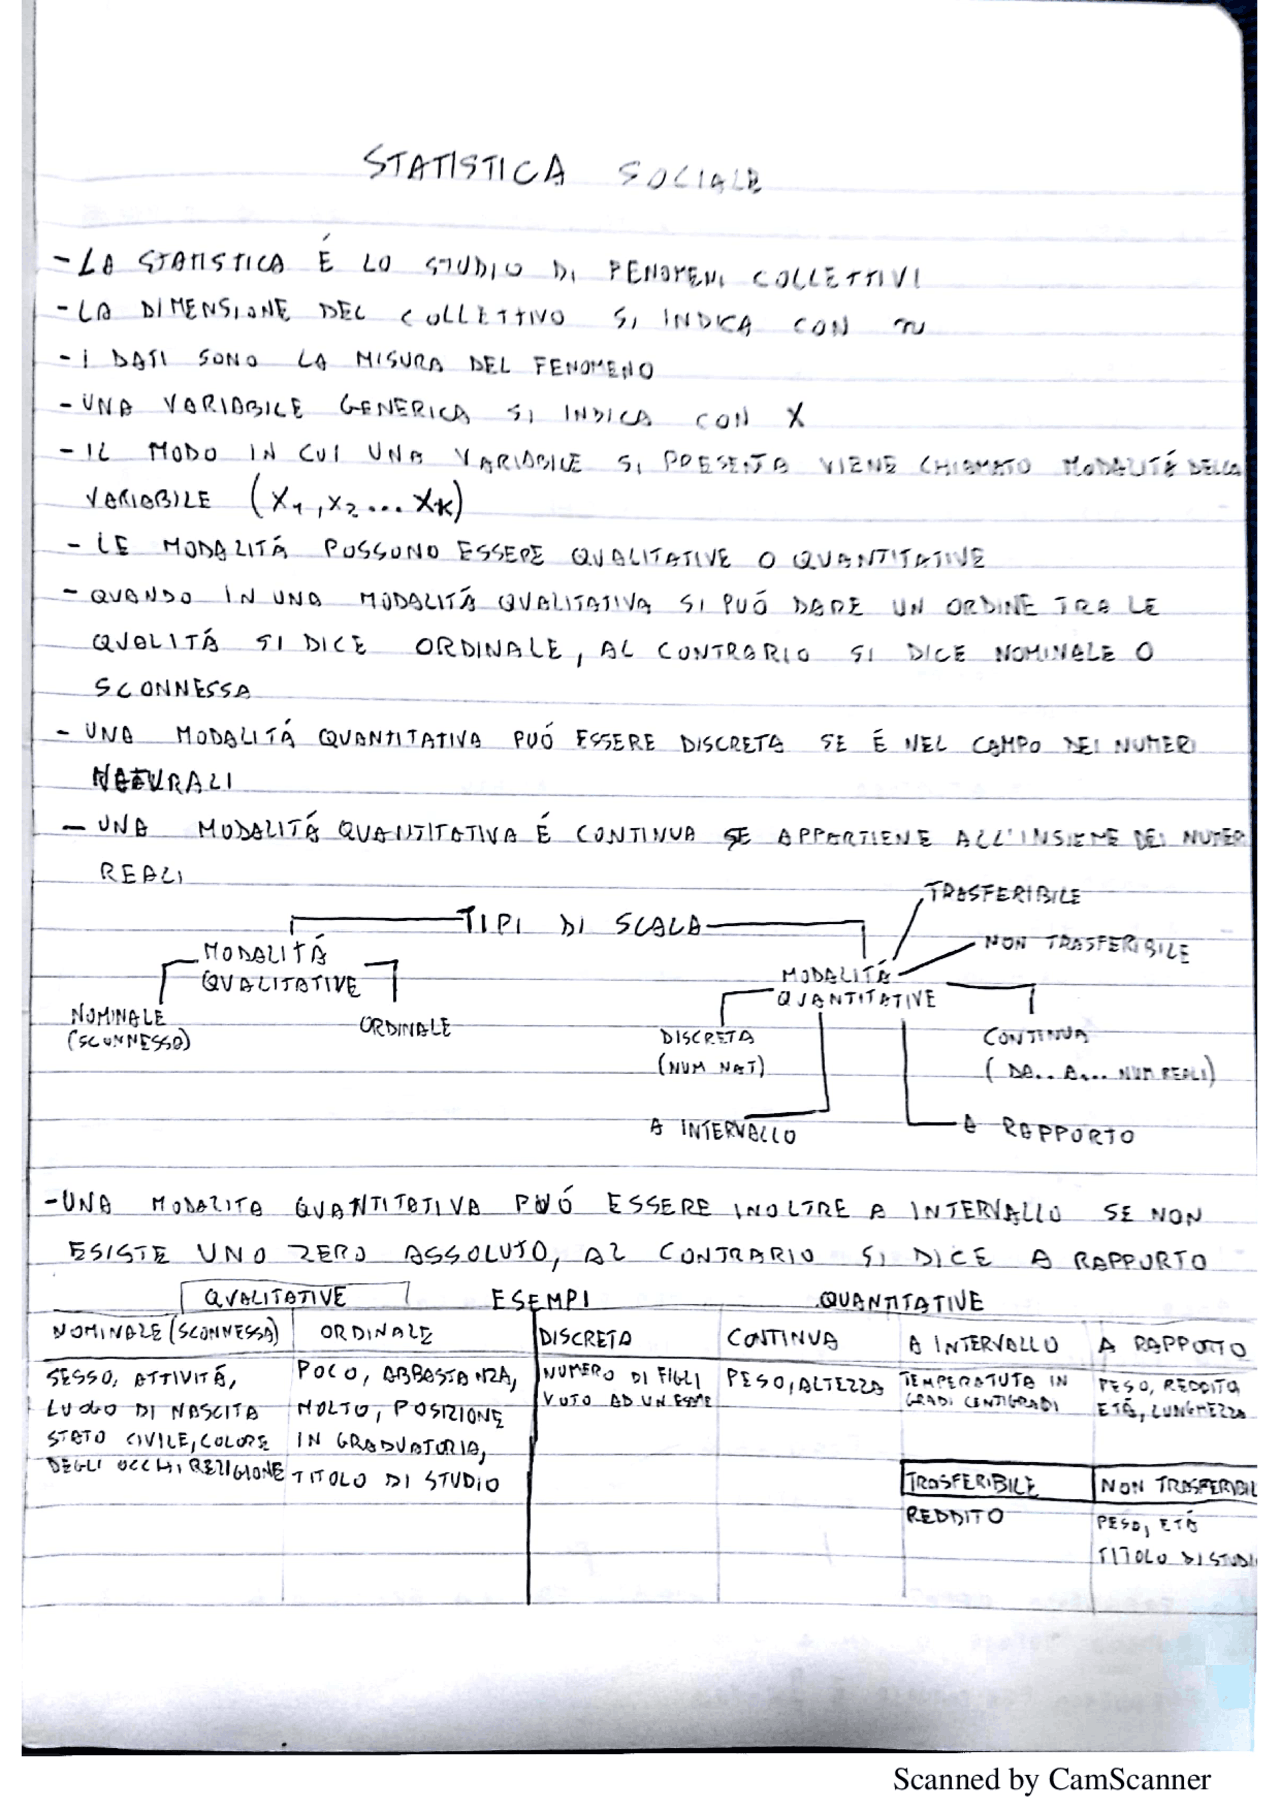 STATISTICA SOCIALE
- LA STATISTICA É LO STUDIO DI FENOMENI COLLETTIVI
- LA DIMENSIONE DEL COLLETTIVO SI INDICA CON n
- I DATI SONO LA MISURA DEL FENOMENO
- UNA VARIABILE GENERICA SI INDICA CON X
- IL MODO IN CUI UNA VARIABILE SI PRESENTA VIENE CHIAMATO MODALITÁ DELLA
VARIABILE (X1, X2 ... XK)
- LE MODALITÁ POSSONO ESSERE QUALITATIVE O QUANTITATIVE
- QUANDO IN UNA MODALITÁ QUALITATIVA SI PUÓ DARE UN ORDINE TRA LE
QUALITÁ SI DICE ORDINALE, AL CONTRARIO SI DICE NOMINALE O
SCONNESSA
- UNA MODALITÁ QUANTITATIVA PUÓ ESSERE DISCRETA SE É NEL CAMPO DEI NUMERI
NATURALI
- UNA MODALITÁ QUANTITATIVA É CONTINUA SE APPARTIENE ALL'INSIEME DEI NUMER
REALI
TRASFERIBILE
TIPI DI SCALA
NON TRASFERIBILE
MODALITÁ
QUALITATIVE
MODALITÁ
QUANTITATIVE
NOMINALE
(SCONNESSA)
ORDINALE
DISCRETA
(NUM NAT)
CONTINUA
(DA.. A... NUM REALI)
A INTERVALLO
A RAPPORTO
- UNA MODALITA QUANTITATIVA PUÓ ESSERE INOLTRE A INTERVALLO SE NON
ESISTE UNO ZERO ASSOLUTO, AL CONTRARIO SI DICE A RAPPORTO
QUALITATIVE ESEMPI QUANTITATIVE
NOMINALE (SCONNESSA) ORDINALE DISCRETA CONTINUA A INTERVALLO A RAPPOTTO
SESSO, ATTIVITÁ,
LUOGO DI NASCITA
STATO CIVILE, COLORE
DEGLI OCCHI, RELIGIONE
POCO, ABBASTANZA,
MOLTO, POSIZIONE
IN GRADUATORIA,
TITOLO DI STUDIO
NUMERO DI FIGLI
VOTO AD UN ESAME
PESO, ALTEZZA
TEMPERATUTA IN
GRADI CENTIGRADI
PESO, REDDITO,
ETÁ, LUNGHEZZA
TRASFERIBILE NON TRASFERIBIL
REDDITO
PESO, ETÁ
TITOLO DI STUDI
Scanned by CamScanner